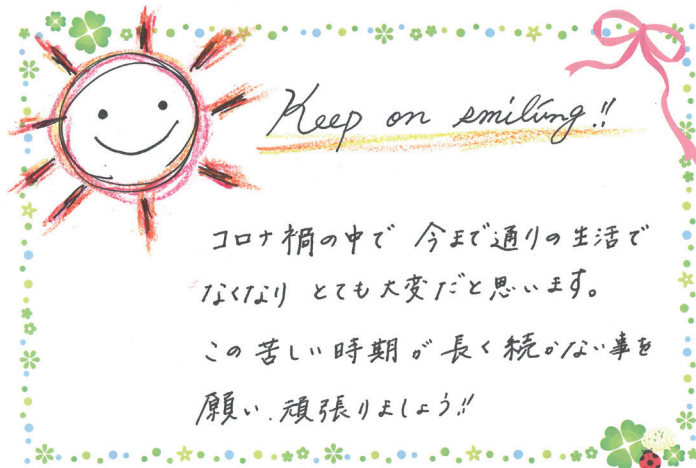 Keep on smiling!!
コロナ禍の中で 今まで通りの生活で
なくなり とても大変だと思います。
この苦しい時期が長く続かない事を
願い、頑張りましょう!!